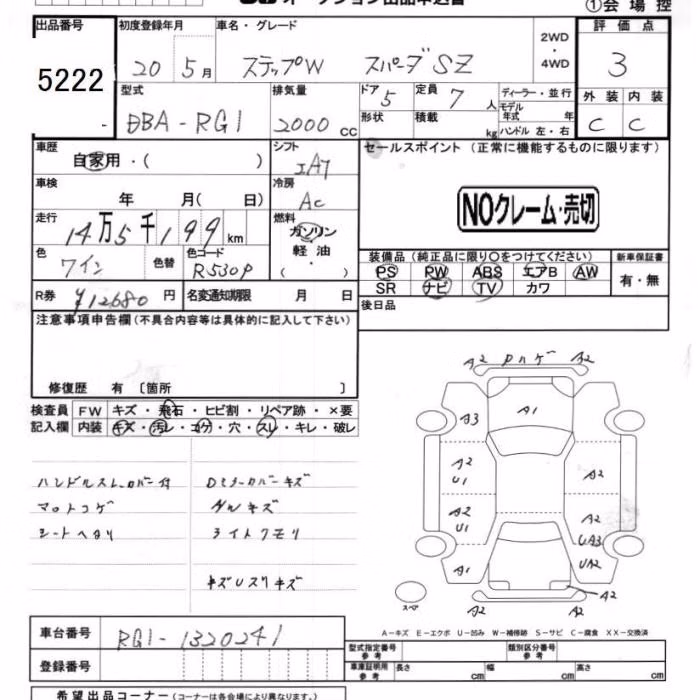 オークション出品申込書
①会場控
出品番号 初度登録年月 車名・グレード 2WD・4WD 評価点
5222 20 5月 ステップW スパーダSZ 3
型式 排気量 ドア 5 定員 7人 ディーラー・並行 外装 内装
DBA-RG1 2000cc 形状 積載 kg モデル年式 年 C C
ハンドル 左・右
車歴 自家用・( ) シフト IAT セールスポイント (正常に機能するものに限ります)
車検 年 月( 日) 冷房 AC
NOクレーム・売切
走行 14万5千199km 燃料 ガソリン・軽油・( )
色 ワイン 色替 色コード R530P
装備品(純正品に限り〇をつけてください) 新車保証書
PS PW ABS エアB AW 有・無
SR ナビ TV カワ
R券 ¥12680円 名変通知期限 月 日 後日品
注意事項申告欄(不具合内容等は具体的に記入して下さい)
修復歴 有〔箇所 〕
検査員 FW キズ・飛石・ヒビ割・リペア跡・×要
記入欄 内装 キズ・汚レ・コゲ・穴・スレ・キレ・破レ
ハンドルスレ・カバー付 Dミラーカバーキズ
マットコゲ AWキズ
シートヘタリ ライトクモリ
キズUスリキズ
A2 Pハゲ A2
A3 A1
A2 U1 A2
A2 U1 A2 UA3
A1 UA2
A2
A2 A2
スペア
A-キズ E-エクボ U-凹み W-補修跡 S-サビ C-腐食 XX-交換済
車台番号 RG1-1320241
型式指定番号 参考 類別区分番号 参考
登録番号 車庫証明用 参考 長さ cm 幅 cm 高さ cm
希望出品コーナー(コーナーは各会場により異なります。)